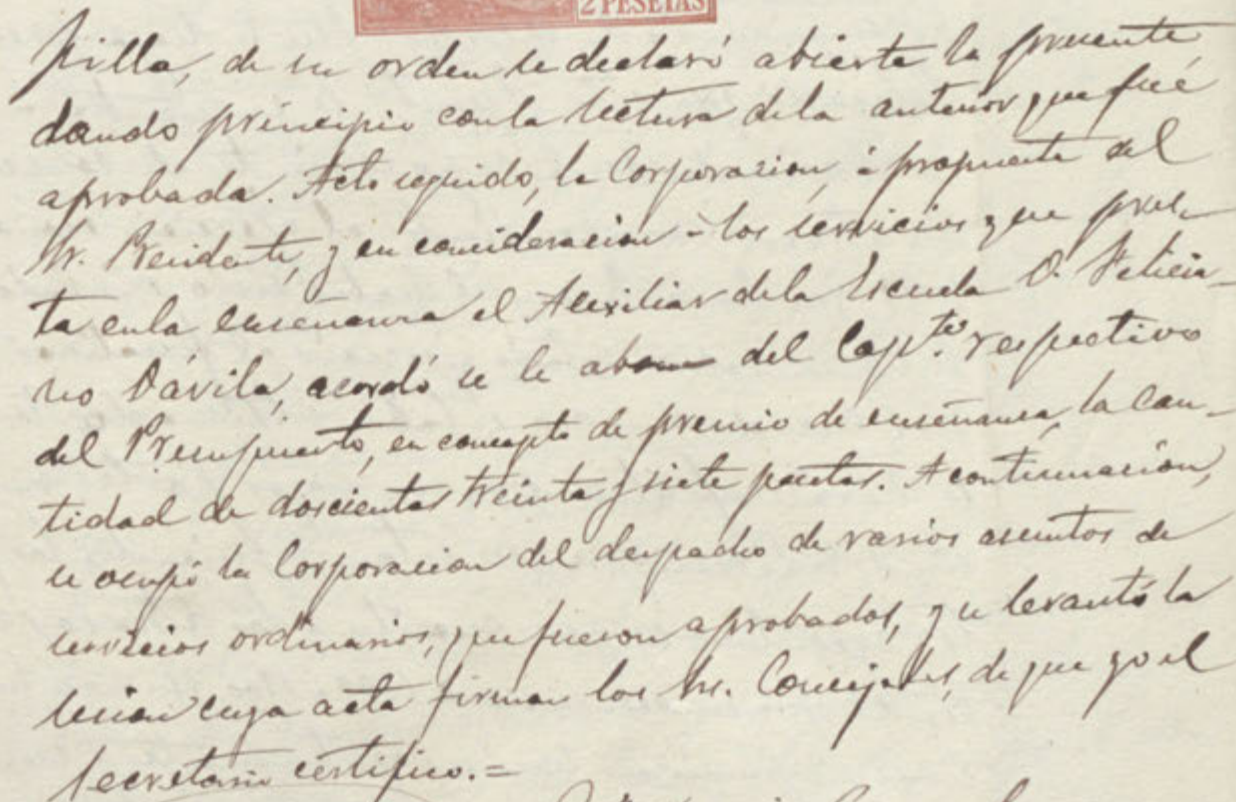 2 PESETAS
pilla, de su orden se declaró abierta la presente
dando principio con la lectura de la anterior que fué
aprobada. Acto seguido, la Corporacion, á propuesta del
Sr. Presidente, y en consideracion á los servicios que pres-
ta en la enseñanza el Auxiliar de la Escuela D. Felicia-
no Dávila, acordó se le abone del Capto. respectivo
del Presupuesto, en concepto de premio de enseñanza, la can-
tidad de doscientas treinta y siete pesetas. A continuacion,
se ocupó la Corporacion del despacho de varios asuntos de
servicios ordinarios, que fueron aprobados, y se levantó la
sesion cuya acta firman los Srs. Concejales, de que yo el
Secretario certifico.=